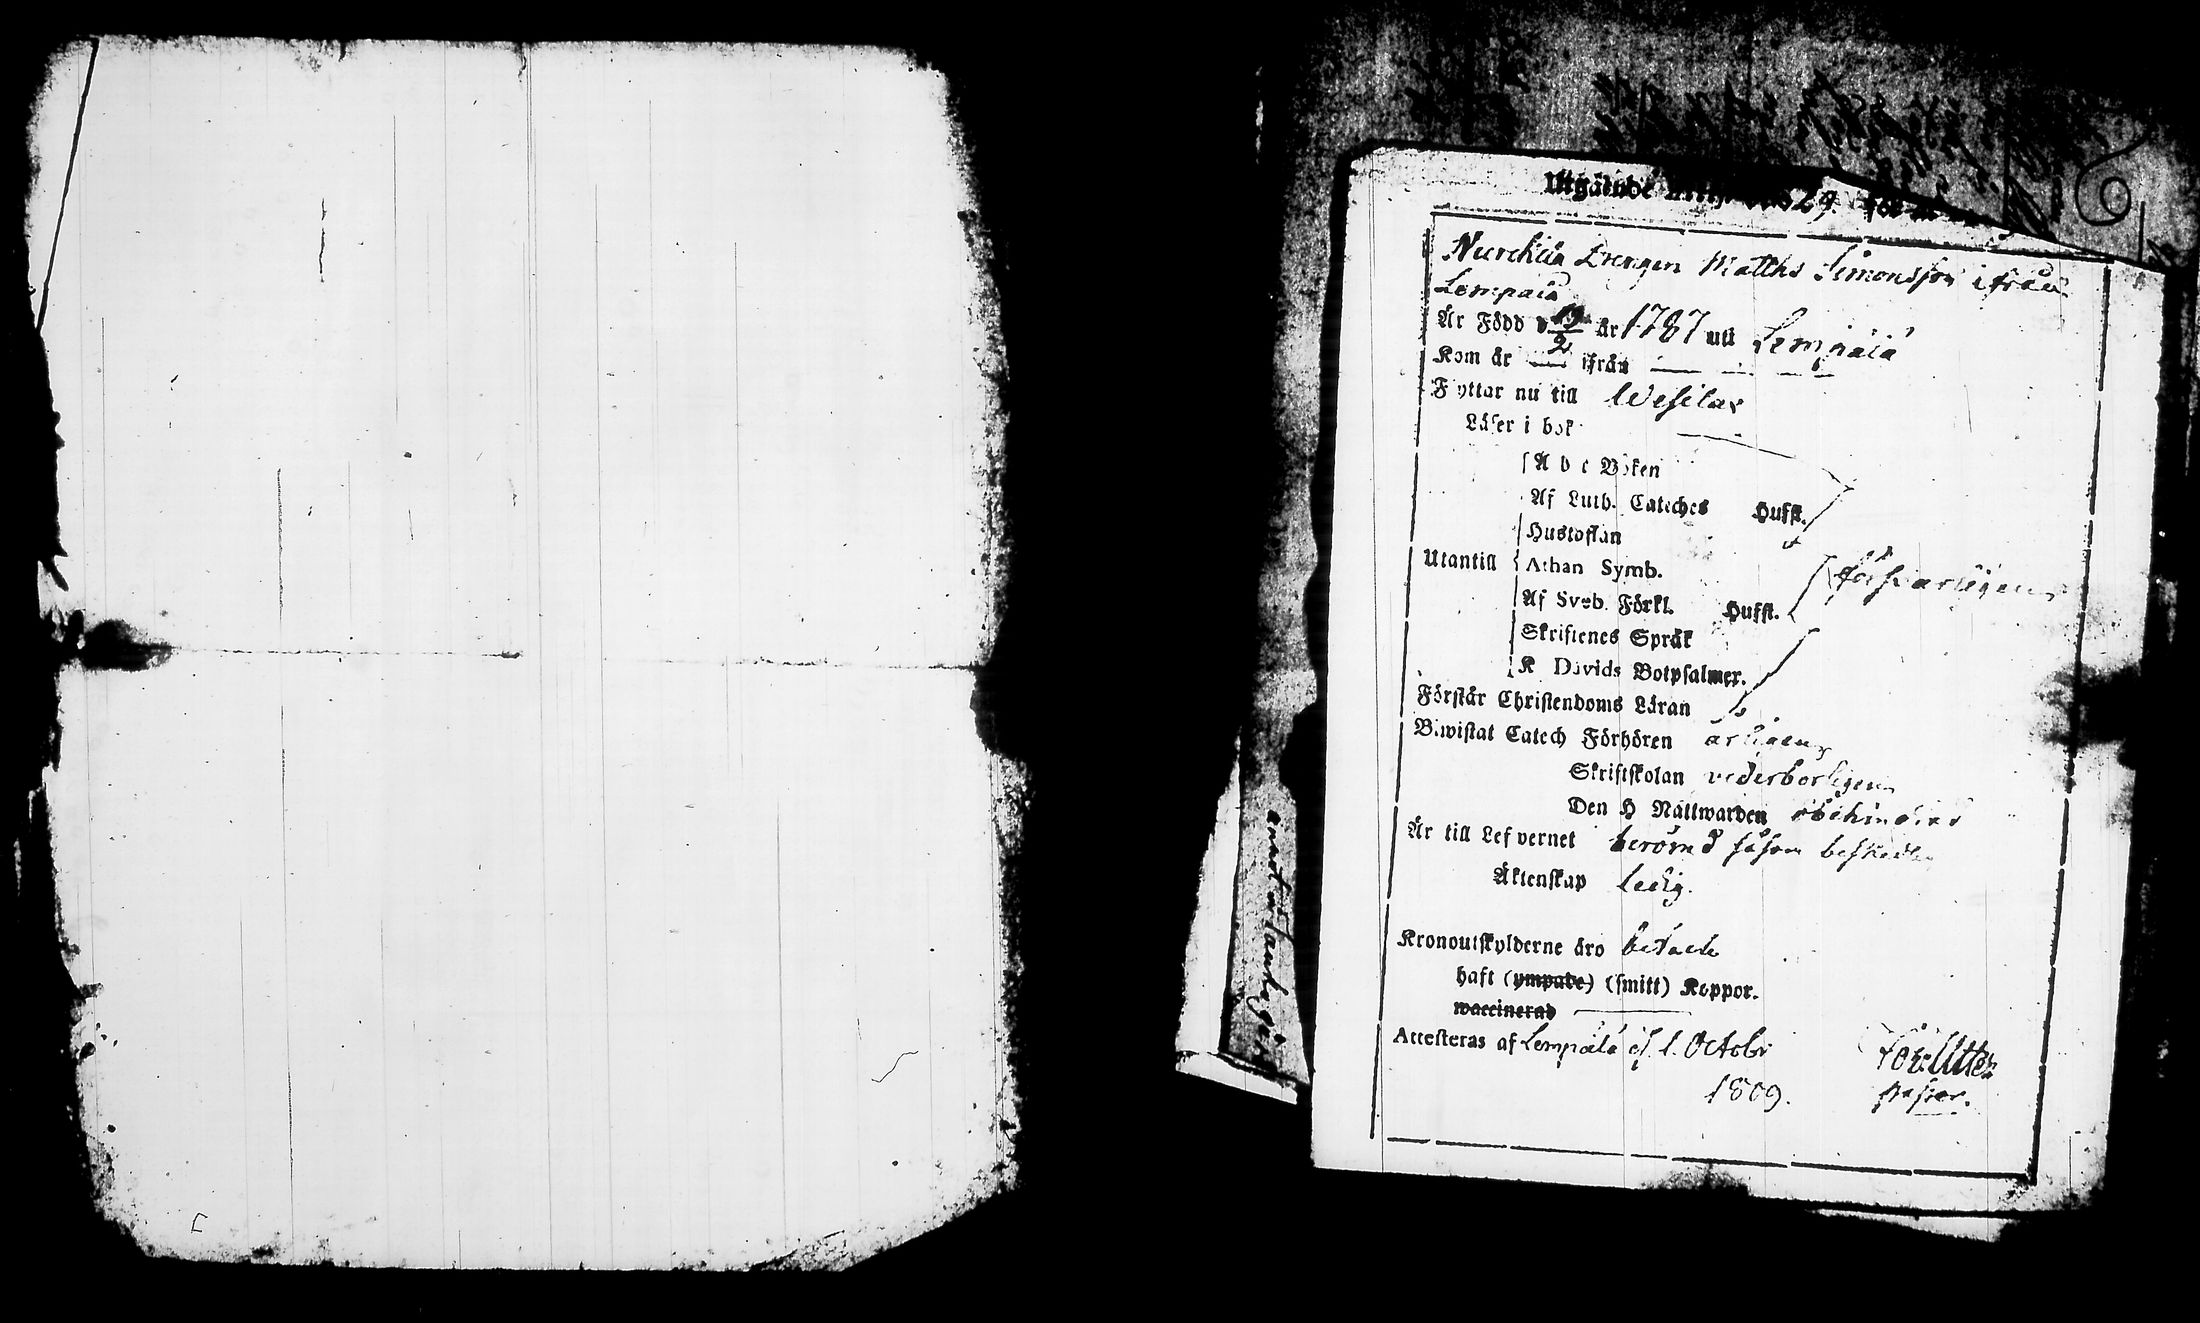 Utgående 29.
Drengen Matths Simonsson ifrån
Lempälä
Är Född d 19/2 år 1787 uti Lempälä
Kom år — ifrån —
Flyttar nu till Wesilax
Läser i bok
A b c Boken
Af Luth. Cateches Hufst.
Hustaflan
Utantill Athan Symb.
försvarligen
Af Sveb. Förkl. Hufst.
Skriftenes Språk
K Davids Botpsalmer.
Förstår Christendoms Läran
Biwistat Catech Förhören årligen
Skriftskolan vederbörligen
Den H Nattwarden
Är till Lefvernet berömd såsom
Äktenskap ledig.
Kronoutskylderne äro betalte
haft (ympade) (smitt) Koppor.
waccinerad —
Attesteras af Lempälä d. 1. October
1809.
pastor.